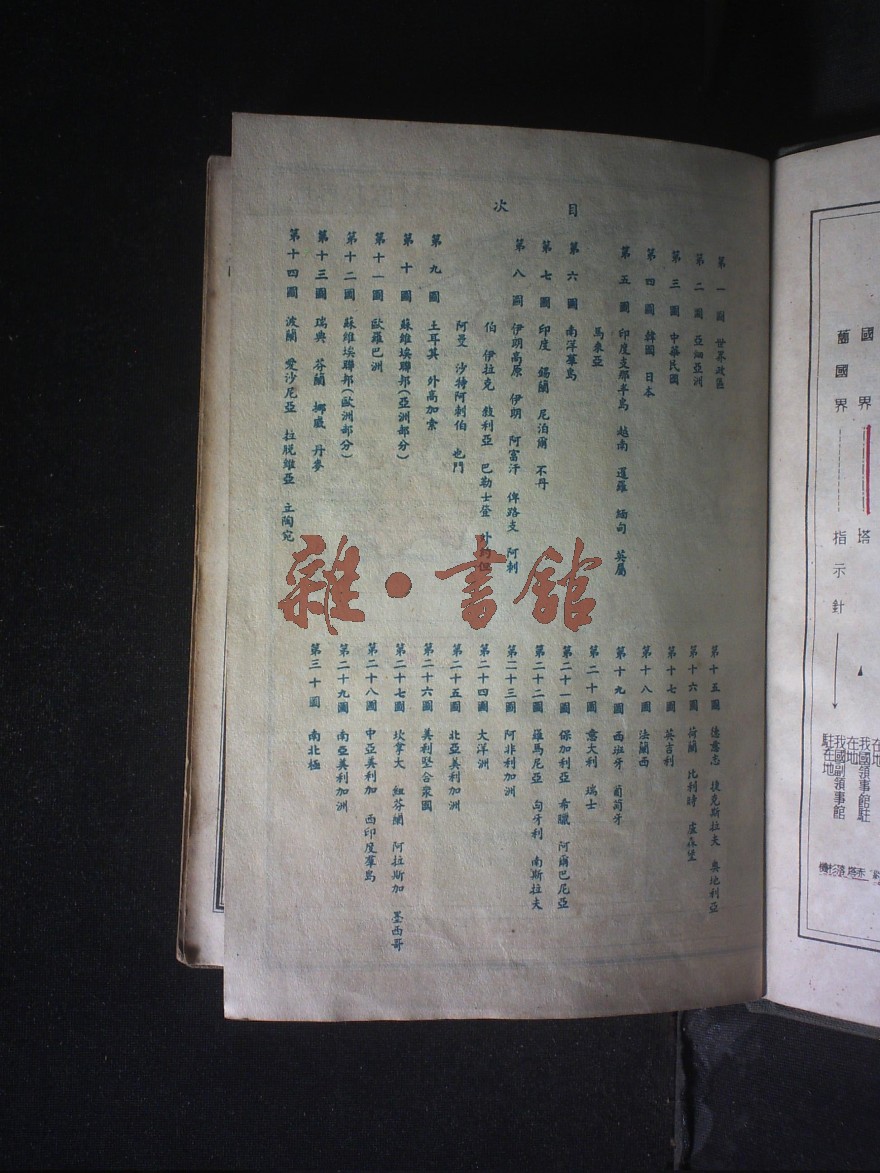 目次
第一圖 世界政區
第二圖 亞細亞洲
第三圖 中華民國
第四圖 韓國 日本
第五圖 印度支那半島 越南 暹羅 緬甸 英屬
馬來亞
第六圖 南洋羣島
第七圖 印度 錫蘭 尼泊爾 不丹
第八圖 伊朗高原 伊朗 阿富汗 俾路支 阿剌
伯 伊拉克 敍利亞 巴勒士登 外約但
阿曼 沙特阿剌伯 也門
第九圖 土耳其 外高加索
第十圖 蘇維埃聯邦(亞洲部分)
第十一圖 歐羅巴洲
第十二圖 蘇維埃聯邦(歐洲部分)
第十三圖 瑞典 芬蘭 挪威 丹麥
第十四圖 波蘭 愛沙尼亞 拉脫維亞 立陶宛
第十五圖 德意志 捷克斯拉夫 奧地利亞
第十六圖 荷蘭 比利時 盧森堡
第十七圖 英吉利
第十八圖 法蘭西
第十九圖 西班牙 葡萄牙
第二十圖 意大利 瑞士
第二十一圖 保加利亞 希臘 阿爾巴尼亞
第二十二圖 羅馬尼亞 匈牙利 南斯拉夫
第二十三圖 阿非利加洲
第二十四圖 大洋洲
第二十五圖 北亞美利加洲
第二十六圖 美利堅合衆國
第二十七圖 坎拿大 紐芬蘭 阿拉斯加 墨西哥
第二十八圖 中亞美利加 西印度羣島
第二十九圖 南亞美利加洲
第三十圖 南北極
雜·書館
國界
塔
我國領事館駐在地
萬國界
指示針
我國副領事館駐在地